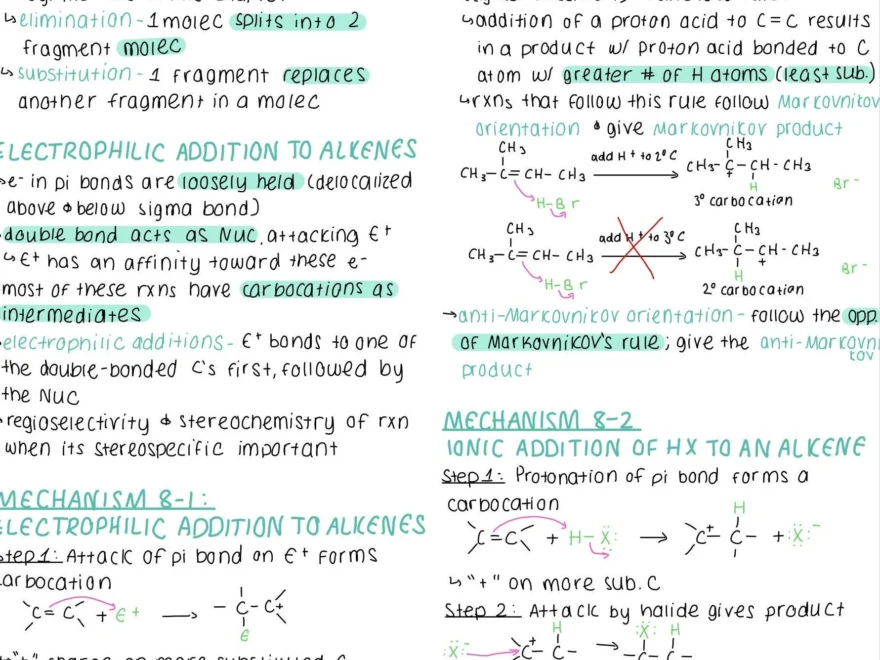 ↳elimination - 1 molec splits into 2
fragment molec
↳substitution - 1 fragment replaces
another fragment in a molec
ELECTROPHILIC ADDITION TO ALKENES
e⁻ in pi bonds are loosely held (delocalized
above & below sigma bond)
double bond acts as Nuc, attacking E+
↳E+ has an affinity toward these e-
most of these rxns have carbocations as
intermediates
electrophilic additions - E+ bonds to one of
the double-bonded C's first, followed by
the Nuc
regioselectivity & stereochemistry of rxn
when its stereospecific important
MECHANISM 8-1:
ELECTROPHILIC ADDITION TO ALKENES
Step 1: Attack of pi bond on E+ forms
carbocation
C=C + E+ → -C-C+
E
↳addition of a proton acid to C=C results
in a product w/ proton acid bonded to C
atom w/ greater # of H atoms (least sub.)
↳rxns that follow this rule follow Markovnikov
orientation & give Markovnikov product
CH3 CH3
CH3-C=CH-CH3 add H+ to 2°C CH3-C-CH-CH3
+ H
H-Br 3° carbocation Br-
CH3 CH3
CH3-C=CH-CH3 add H+ to 3°C CH3-C-CH-CH3
H +
H-Br 2° carbocation Br-
→anti-Markovnikov orientation - follow the opp.
of Markovnikov's rule; give the anti-Markovni
kov
product
MECHANISM 8-2
IONIC ADDITION OF HX TO AN ALKENE
Step 1: Protonation of pi bond forms a
carbocation
H
C=C + H-X: → C+-C- + :X:-
↳"+" on more sub. C
Step 2: Attack by halide gives product
H :X: H
:X:- C+-C- → -C-C-